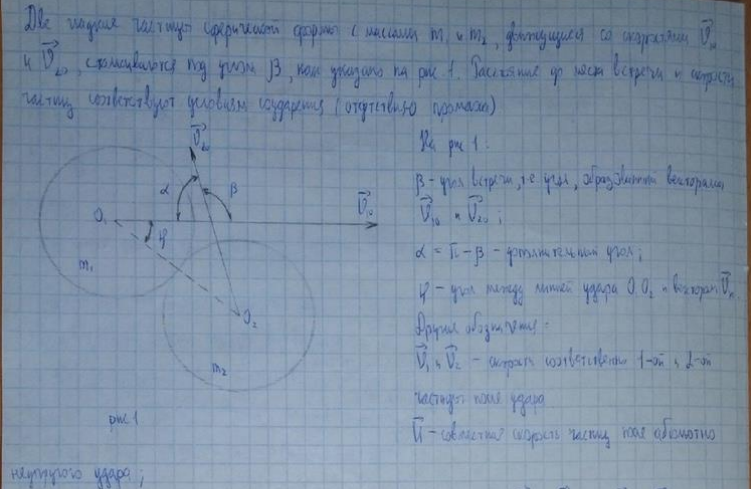 Две гладкие частицы сферической формы с массами m₁ и m₂, движущиеся со скоростями V⃗₁₀
и V⃗₂₀, сталкиваются под углом β, как указано на рис 1. Расстояние до места встречи и скорости
частиц соответствуют условиям соударения (отсутствию промаха)
На рис 1:
V⃗₂₀
β – угол встречи, т.е. угол, образованный векторами
α β V⃗₁₀
V⃗₁₀ и V⃗₂₀;
O₁
φ
α = π – β – дополнительный угол;
m₁
φ – угол между линией удара O₁O₂ и вектором
O₂
Другие обозначения:
m₂
V⃗₁ и V⃗₂ – скорость соответственно 1-ой и 2-ой
частицы после удара
рис 1
U⃗ – совместная скорость частиц после абсолютно
неупругого удара;